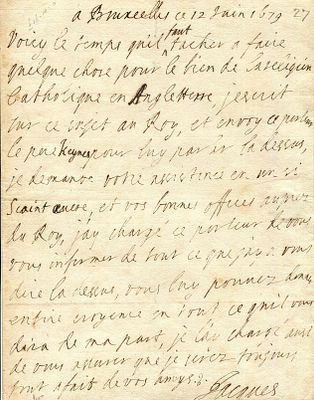 a Bruxelles ce 12 Juin 1679 27
Voicy le temps qu'il faut tacher a faire
quelque chose pour le bien de la religion
Catholique en Angleterre, j'escrit
sur ce sujet au Roy, et envoy ce porteur
le pere Keynes pour luy parler la dessus,
je demande votre assistence en un si
Scaint euvre, et vos bonnes offices aupres
du Roy, jay charge ce porteur de vous
vous informer de tout ce que j'ay a vous
dire la dessus, vous luy pouvez donner
entire croyence en tout ce qu'il vous
dira de ma part, je l'ay charge aussi
de vous assurer que je serez toujours
tout a fait de vos amys.
Jacques